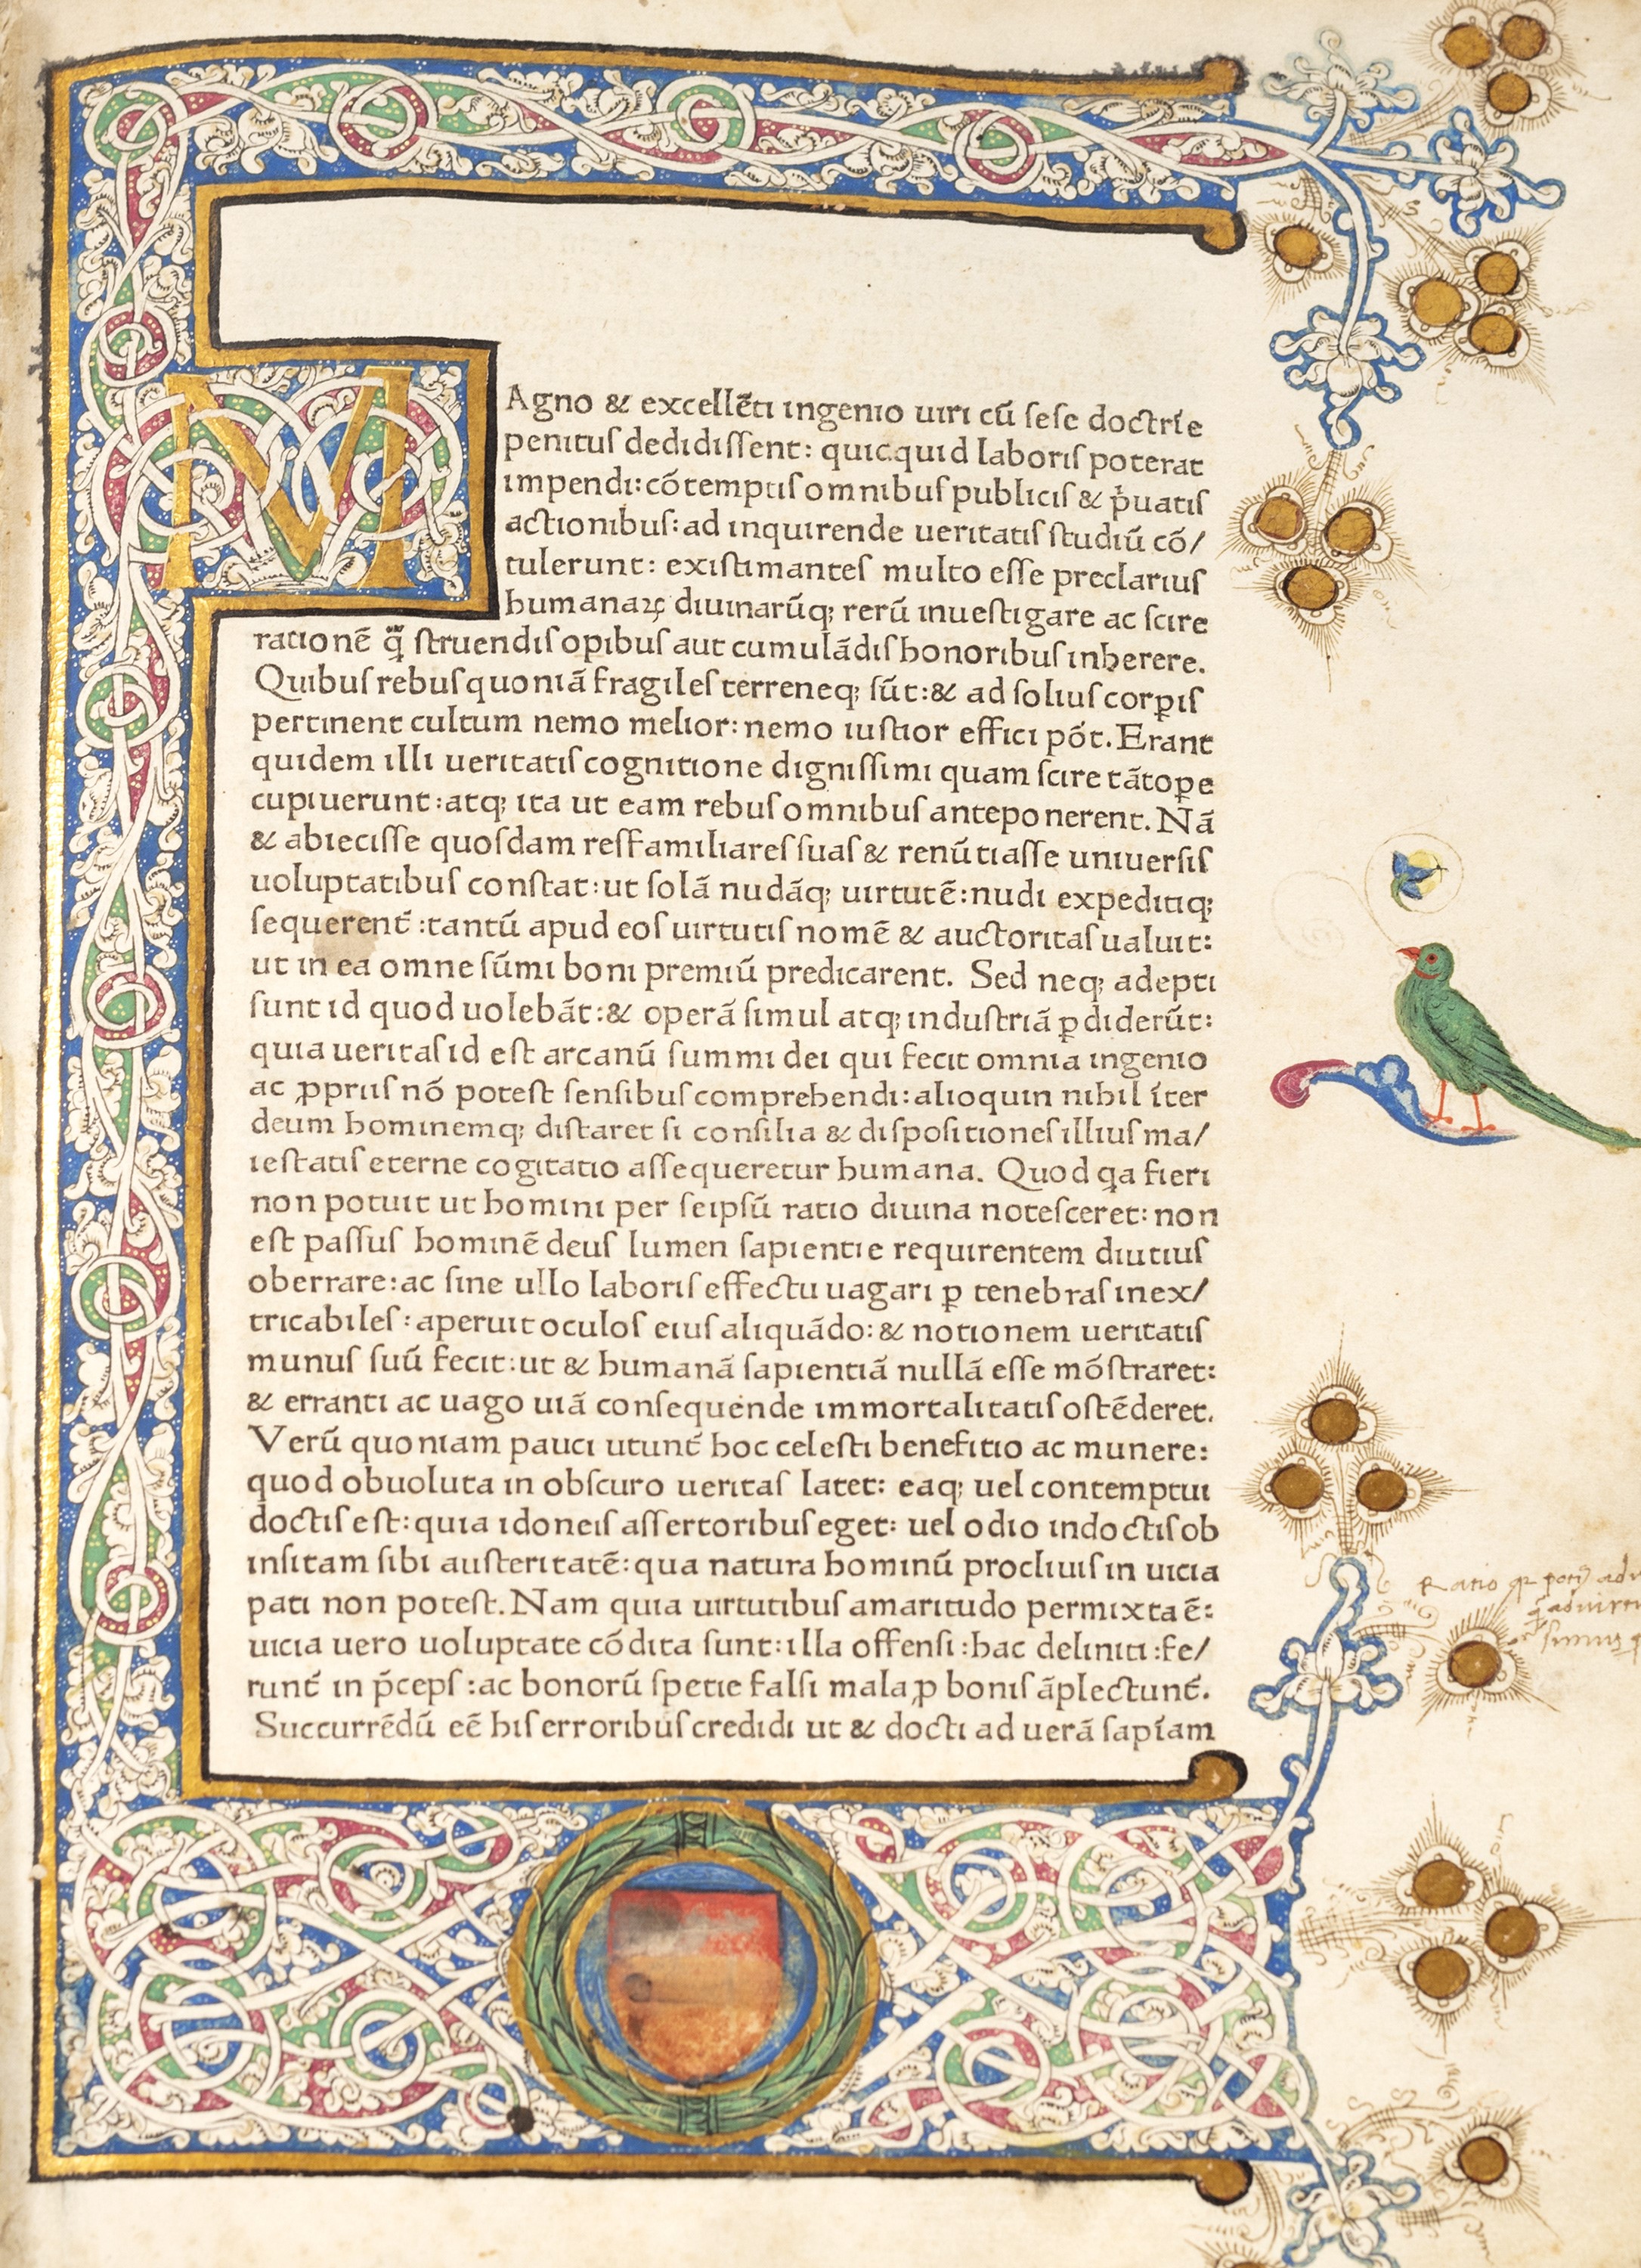 MAgno & excellēti ingenio uiri cū sese doctrīe
penitus dedidissent: quicquid laboris poterat
impendi: cōtemptis omnibus publicis & p̄uatis
actionibus: ad inquirende ueritatis studiū cō/
tulerunt: existimantes multo esse preclarius
humanaꝝ diuinarūq; rerū inuestigare ac scire
rationē q̄ struendis opibus aut cumulādis honoribus inherere.
Quibus rebus quoniā fragiles terreneq; sūt: & ad solius corꝑis
pertinent cultum nemo melior: nemo iustior effici pōt. Erant
quidem illi ueritatis cognitione dignissimi quam scire tātoꝑe
cupiuerunt: atq; ita ut eam rebus omnibus anteponerent. Nā
& abiecisse quosdam resfamiliares suas & renūtiasse uniuersis
uoluptatibus constat: ut solā nudāq; uirtutē: nudi expeditiq;
sequerent᷑: tantū apud eos uirtutis nomē & auctoritas ualuit:
ut in ea omne sūmi boni premiū predicarent. Sed neq; adepti
sunt id quod uolebāt: & operā simul atq; industriā ꝑdiderūt:
quia ueritas id est arcanū summi dei qui fecit omnia ingenio
ac ꝓpriis nō potest sensibus comprehendi: alioquin nihil īter
deum hominemq; distaret si consilia & dispositiones illius ma/
iestatis eterne cogitatio assequeretur humana. Quod qa fieri
non potuit ut homini per seipsū ratio diuina notesceret: non
est passus hominē deus lumen sapientie requirentem diutius
oberrare: ac sine ullo laboris effectu uagari ꝑ tenebras inex/
tricabiles: aperuit oculos eius aliquādo: & notionem ueritatis
munus suū fecit: ut & humanā sapientiā nullā esse mōstraret:
& erranti ac uago uiā consequende immortalitatis ostēderet.
Verū quoniam pauci utunt᷑ hoc celesti benefitio ac munere:
quod obuoluta in obscuro ueritas latet: eaq; uel contemptui
doctis est: quia idoneis assertoribus eget: uel odio indoctis ob
insitam sibi austeritatē: qua natura hominū procliuis in uicia
pati non potest. Nam quia uirtutibus amaritudo permixta ē:
uicia uero uoluptate cōdita sunt: illa offensi: hac deliniti: fe/
runt᷑ in p̄ceps: ac bonorū spetie falsi mala ꝓ bonis āplectunt᷑.
Succurrēdū eē his erroribus credidi ut & docti ad uerā sapīam
Ratio